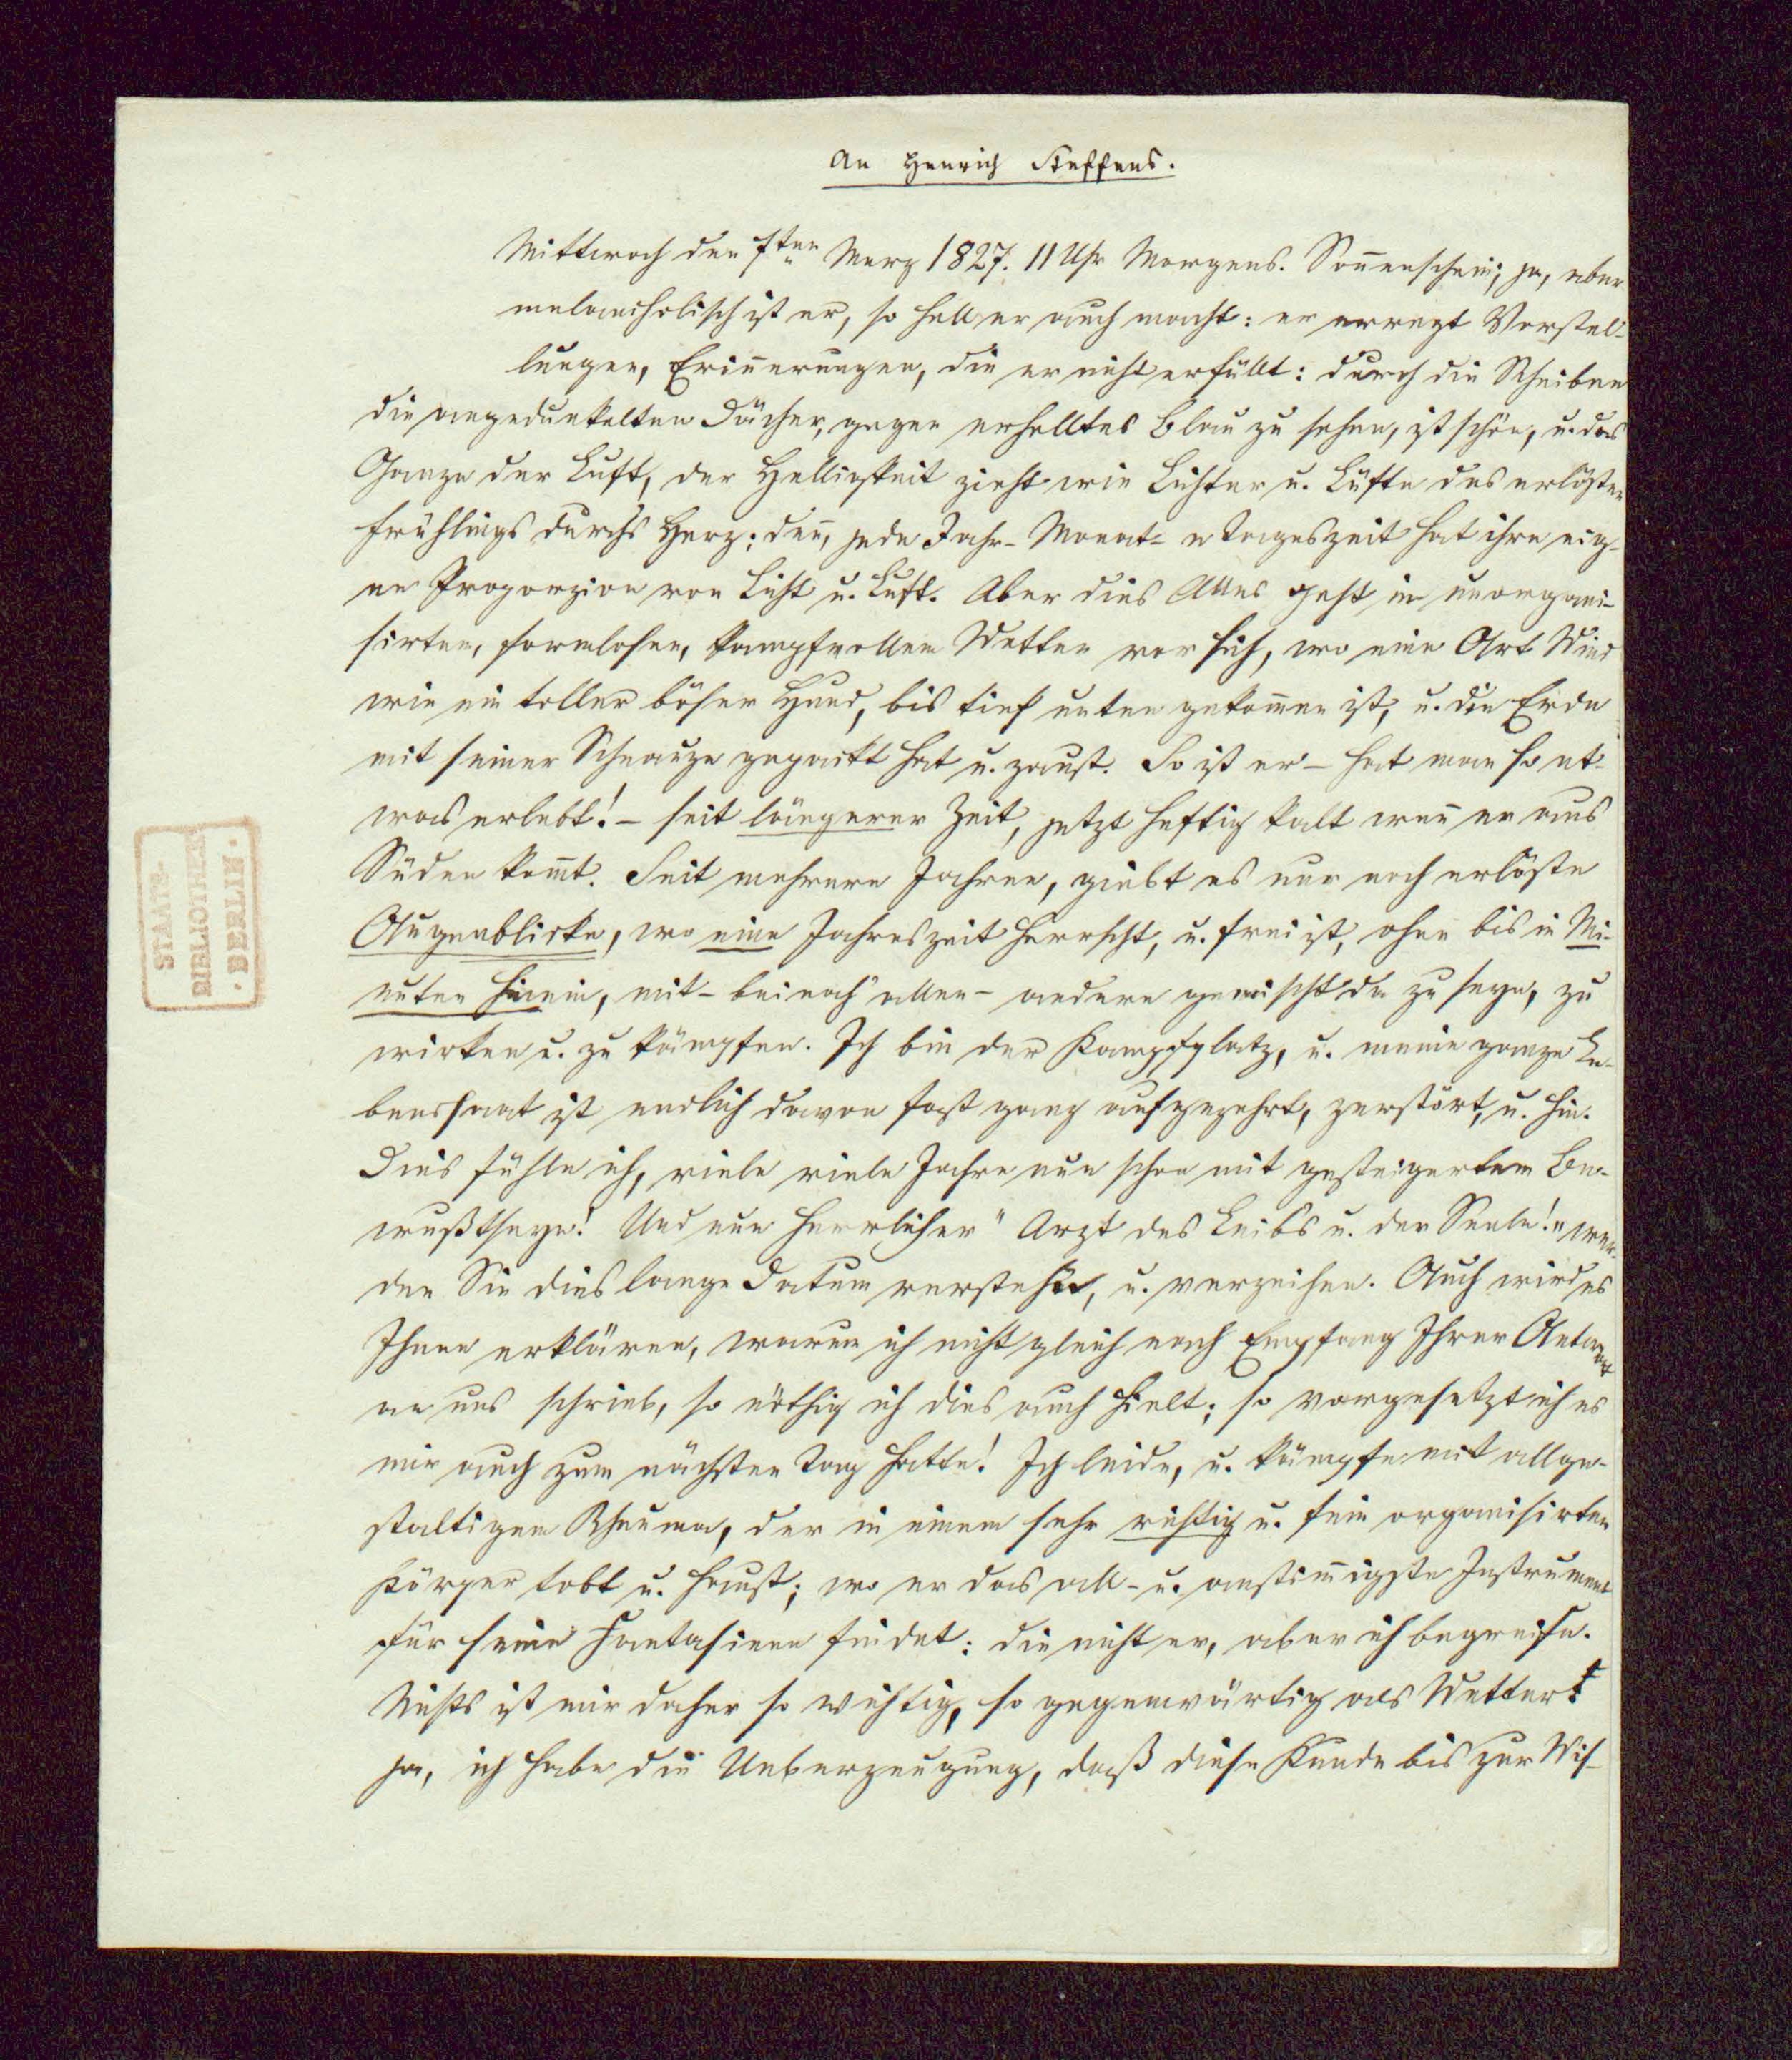 An Henrich Steffens.
Mittwoch den 7ten Merz 1827. 11 Uhr Morgens. Soñenschein; ja, aber
melancholisch ist er, so hell er auch macht: er erregt Vorstel-
lungen, Eriñerungen, die er nicht erfüllt: durch die Scheiben
die angedunkelten Dächer, gegen erhelltes Blau zu sehen, ist schön, u. das
Ganze der Luft, der Helligkeit zieht wie Lichter u. Lüfte des erlösten
Frühlings durchs Herz; deñ, jede Jahr- Monat- u Tageszeit hat ihre eig-
ne Proporzion von Licht u. Luft. Aber dies Alles geht in unorgani-
sirten, formlosen, kampfvollen Wetter vor sich, wo eine Art Wind
wie ein toller böser Hund, bis tief unten gekom̃en ist, u. die Erde
mit seiner Schnauze gepackt hat u. zaust. So ist er – hat man so et-
was erlebt! – seit längerer Zeit, jetzt heftig kalt weñ er aus
Süden kom̃t. Seit mehrere Jahren, giebt es nur noch erlöste
Augenblicke, wo eine Jahreszeit herrscht, u. frei ist, ohne bis in Mi-
nuten hinein, mit – beinah allen – andern gemischt da zu seyn, zu
wirken u. zu kämpfen. Ich bin der Kampfplatz, u. meine ganze Le-
benssaat ist endlich davon fast ganz aufgezehrt, zerstört, u. hin.
Dies fühle ich, viele viele Jahre nun schon mit gesteigertem Be-
wußtseyn! Und nun herrlicher "Arzt des Leibs u. der Seele!" wer-
den Sie dies lange Datum verstehen, u. verzeihen. Auch wird es
Ihnen erklären, warum ich nicht gleich nach Empfang Ihrer Antwort
an uns schrieb, so nöthig ich dies auch hielt; so vorgesetzt ich es
mir auch zum nächsten Tag hatte! Ich leide, u. kämpfe mit allge-
staltigem Rheuma, der in einem sehr richtig u. fein organisirten
Körper tobt u. haust; wo er das all- u. anstim̃igste Instrument
für seine Fantasieen findet: die nicht er, aber ich begreife.
Nichts ist mir daher so wichtig, so gegenwärtig als Wetter!
ja, ich habe die Ueberzeugung, daß diese Kunde bis zur Wis-
STAATS-
BIBLIOTHEK
· BERLIN ·